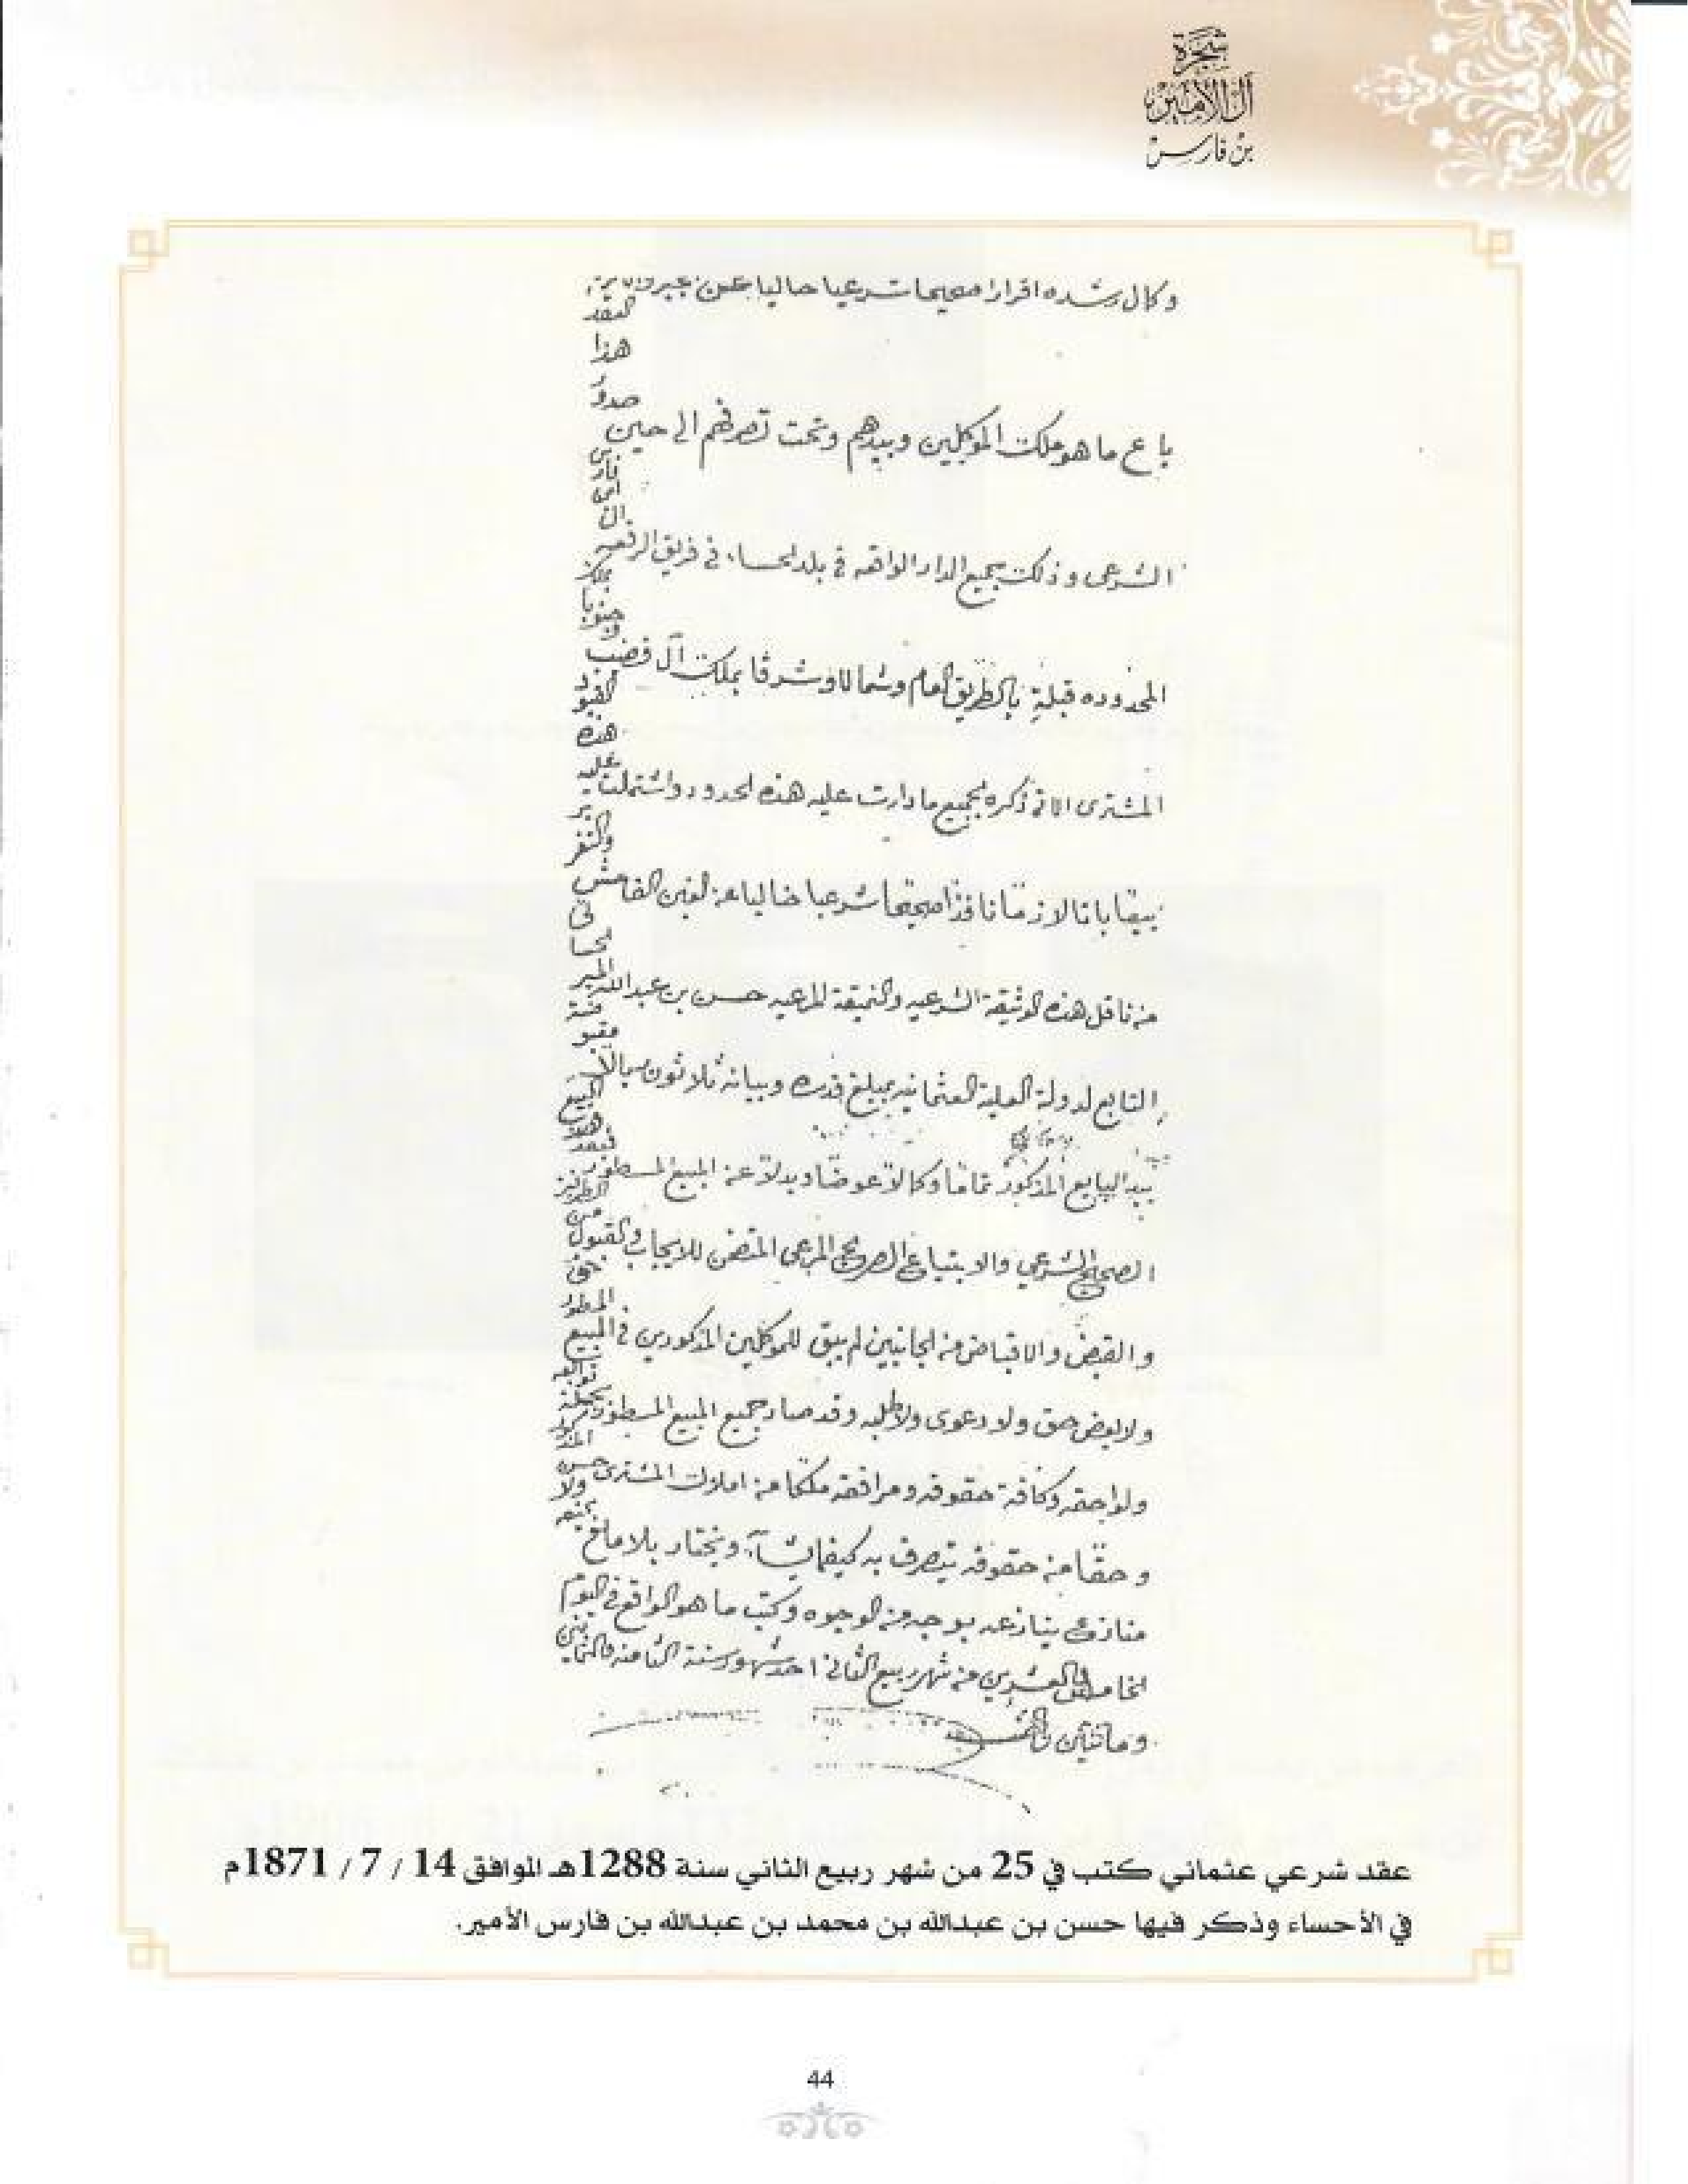 شجرة
آل الأمير
بن فارس
وكمال رشده اقرارا صحيحا شرعيا
العقد
هذا
صدور
باع ما هو ملك الموكلين وبيدهم وتحت تصرفهم الى حين
الشرعى وذلك جميع الدار الواقعه في بلد الحساء في فريق الرفعه
بملك
وجنوبا
المحدوده قبلة بالطريق العام وشمالا وشرقا بملك آل
هذه
عليه
المشترى الاتي ذكره بجميع ما دارت عليه هذه الحدود واشتملت
بيعا باتا لازما نافذا صحيحا شرعيا خاليا عن الغبن الفاحش
من ناقل هذه الوثيقة الشرعيه والنميقة المرعيه حسن بن عبد الله
التابع لدولة العلية العثمانيه بمبلغ قدره وبيانه ثلاثون ريالا
بيد البايع المذكور تماما وكمالا عوضا وبدلا عن المبيع المسطور
الصحيح الشرعي والابتياع الصريح المرعى المتضمن للايجاب والقبول
والقبض والاقباض من الجانبين لم يبق للموكلين المذكورين في المبيع
المسطور
ولا بعض حق ولا دعوى ولا طلبه وقد صار جميع المبيع المسطور
ولواحقه وكافة حقوقه ومرافقه ملكا من املاك المشترى حسن
المذكور
وحقا من حقوقه يتصرف به كيفما يشآء ويختار بلا مانع
ولا
منازع ينازعه بوجه من الوجوه وكتب ما هو الواقع في اليوم
الخامس والعشرين من شهر ربيع الثاني احد شهور سنة الثامنه والثمانين
ومائتين والف
عقد شرعي عثماني كتب في 25 من شهر ربيع الثاني سنة 1288هـ الموافق 14 / 7 / 1871م
في الأحساء وذكر فيها حسن بن عبدالله بن محمد بن عبدالله بن فارس الأمير.
44